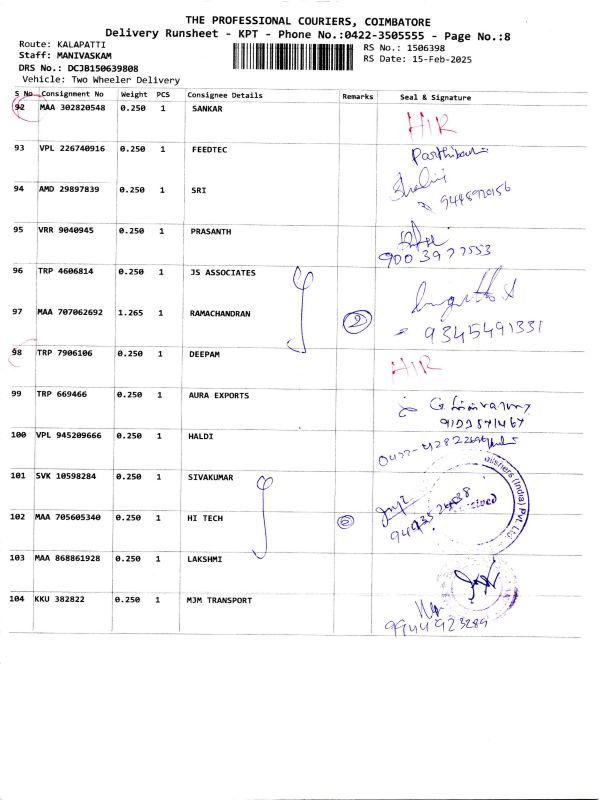 THE PROFESSIONAL COURIERS, COIMBATORE
Delivery Runsheet - KPT - Phone No.:0422-3505555 - Page No.:8
Route: KALAPATTI
Staff: MANIVASKAM
DRS No.: DCJB150639808
Vehicle: Two Wheeler Delivery
RS No.: 1506398
RS Date: 15-Feb-2025
S No Consignment No Weight PCS Consignee Details Remarks Seal & Signature
92 MAA 302820548 0.250 1 SANKAR HIR
93 VPL 226740916 0.250 1 FEEDTEC
94 AMD 29897839 0.250 1 SRI
95 VRR 9040945 0.250 1 PRASANTH
9003977553
96 TRP 4606814 0.250 1 JS ASSOCIATES
97 MAA 707062692 1.265 1 RAMACHANDRAN 2
9345491331
98 TRP 7906106 0.250 1 DEEPAM HIR
99 TRP 669466 0.250 1 AURA EXPORTS
100 VPL 945209666 0.250 1 HALDI
101 SVK 10598284 0.250 1 SIVAKUMAR
(India) Pvt. Ltd.
102 MAA 705605340 0.250 1 HI TECH
103 MAA 868861928 0.250 1 LAKSHMI
104 KKU 382822 0.250 1 MJM TRANSPORT
9944923289